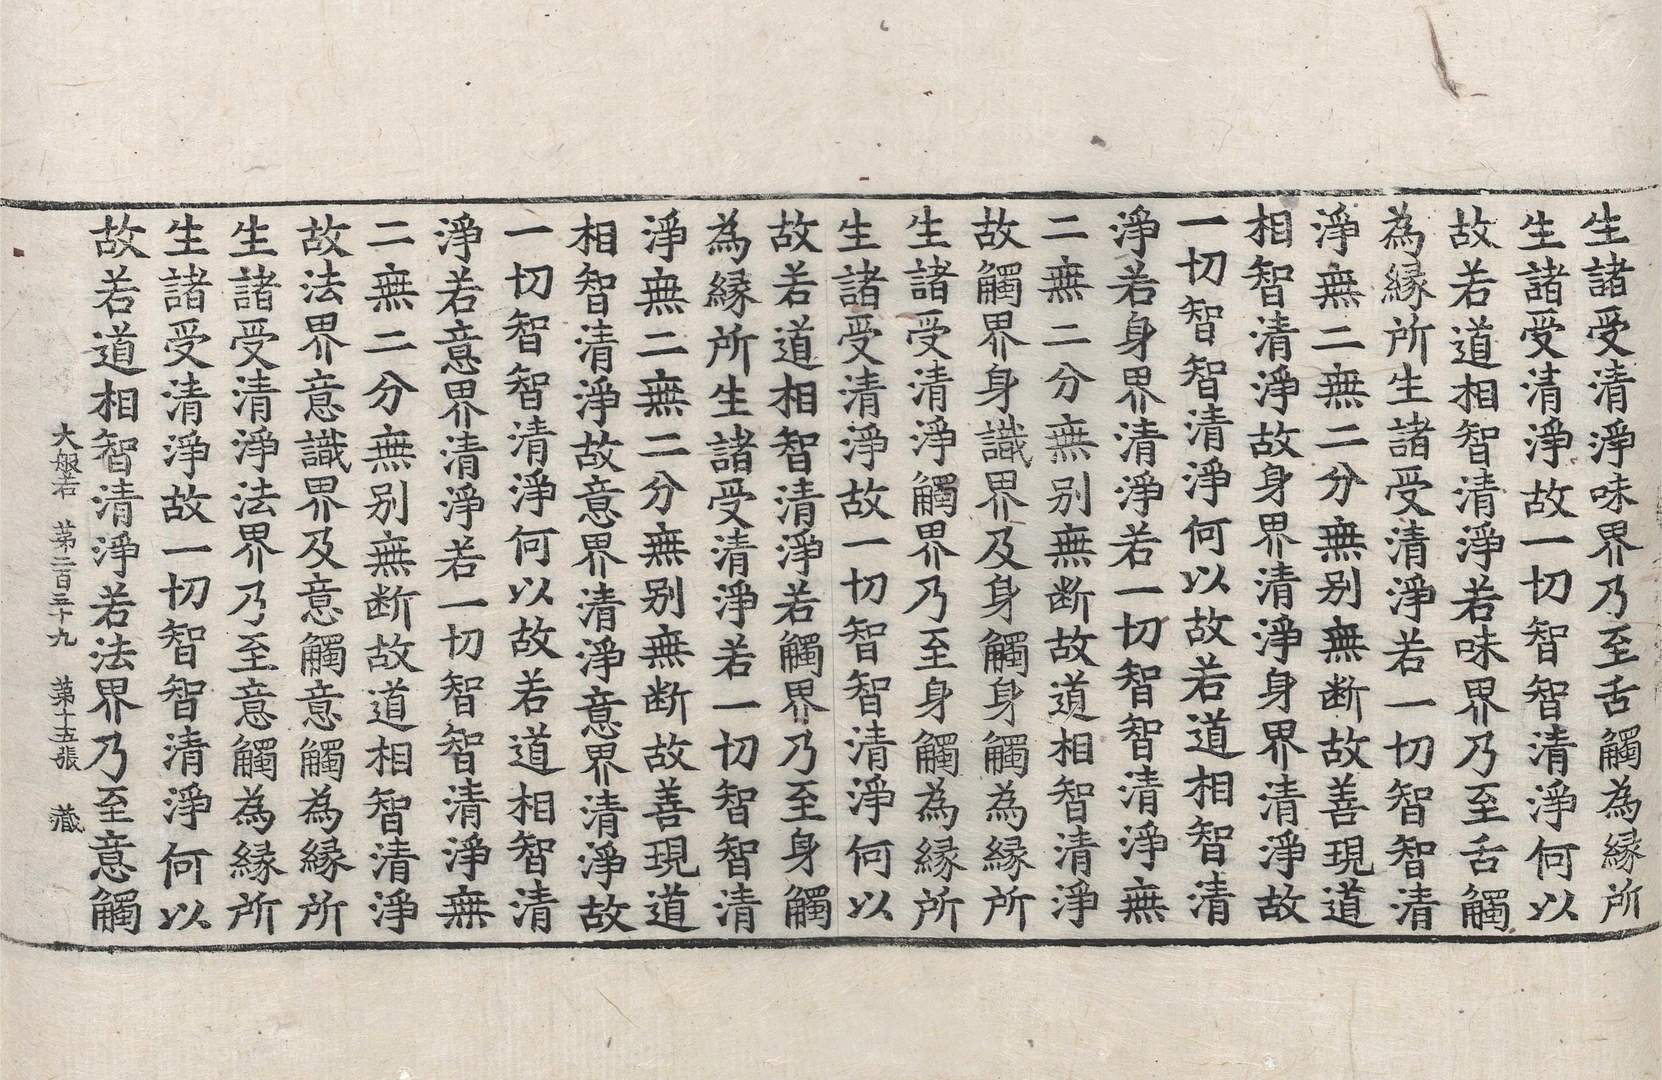 生諸受清淨味界乃至舌觸為縁所
生諸受清淨故一切智智清淨何以
故若道相智清淨若味界乃至舌觸
為縁所生諸受清淨若一切智智清
淨無二無二分無别無断故善現道
相智清淨故身界清淨身界清淨故
一切智智清淨何以故若道相智清
淨若身界清淨若一切智智清淨無
二無二分無别無断故道相智清淨
故觸界身識界及身觸身觸為縁所
生諸受清淨觸界乃至身觸為縁所
生諸受清淨故一切智智清淨何以
故若道相智清淨若觸界乃至身觸
為縁所生諸受清淨若一切智智清
淨無二無二分無别無断故善現道
相智清淨故意界清淨意界清淨故
一切智智清淨何以故若道相智清
淨若意界清淨若一切智智清淨無
二無二分無别無断故道相智清淨
故法界意識界及意觸意觸為縁所
生諸受清淨法界乃至意觸為縁所
生諸受清淨故一切智智清淨何以
故若道相智清淨若法界乃至意觸
大般若 第二百三十九 第十五張 藏